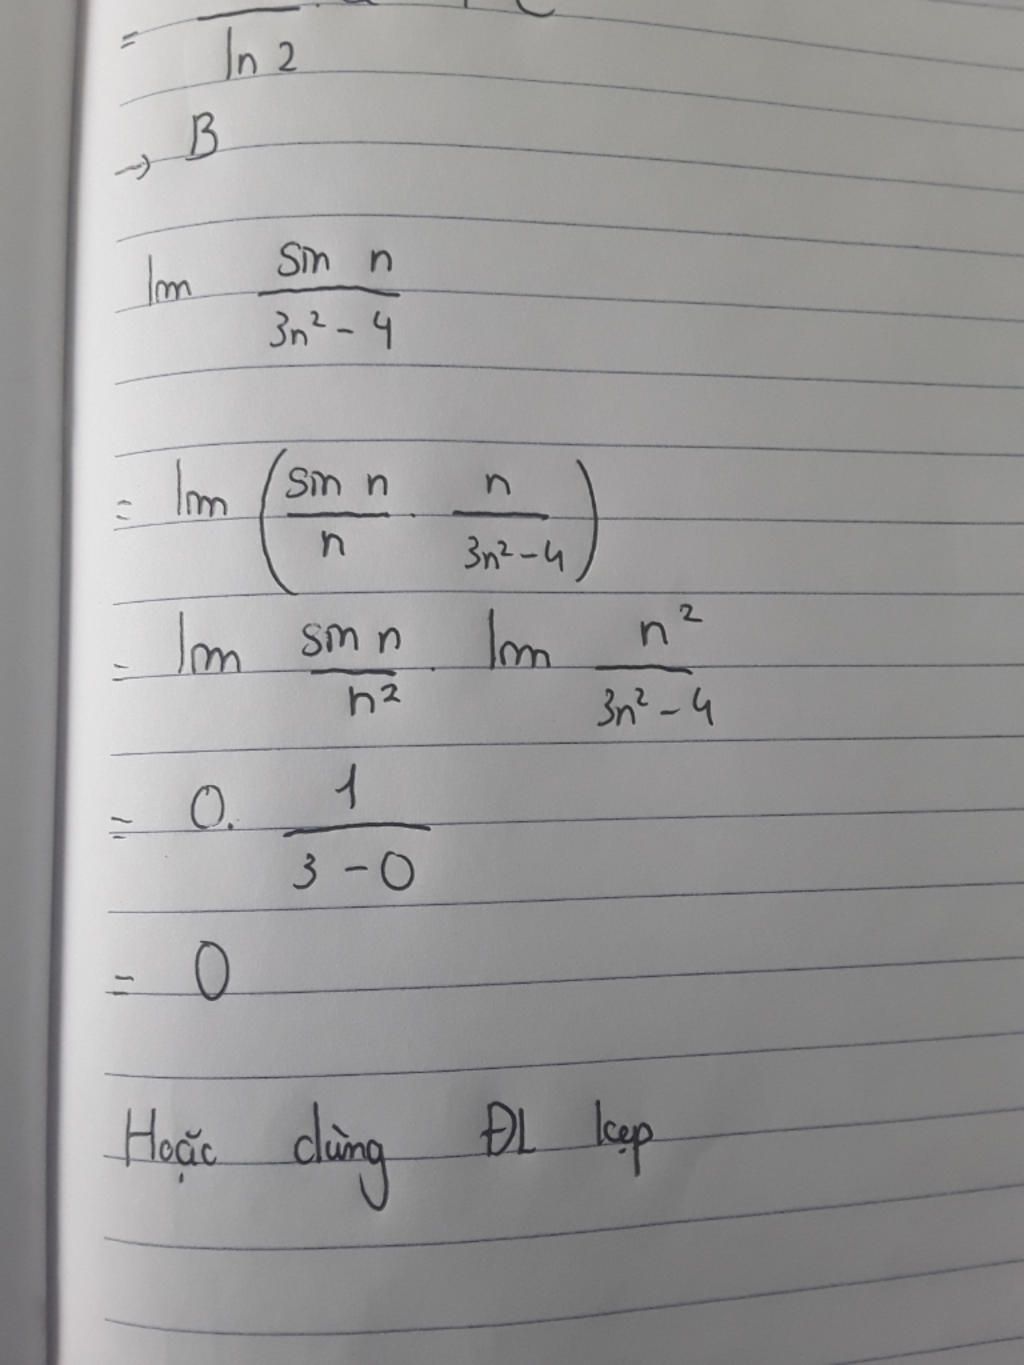 = / ln 2
→ B
lim sin n / 3n² - 4
= lim ( sin n / n . n / 3n² - 4 )
= lim sin n / n² . lim n² / 3n² - 4
= 0. 1 / 3 - 0
= 0
Hoặc dùng ĐL kẹp